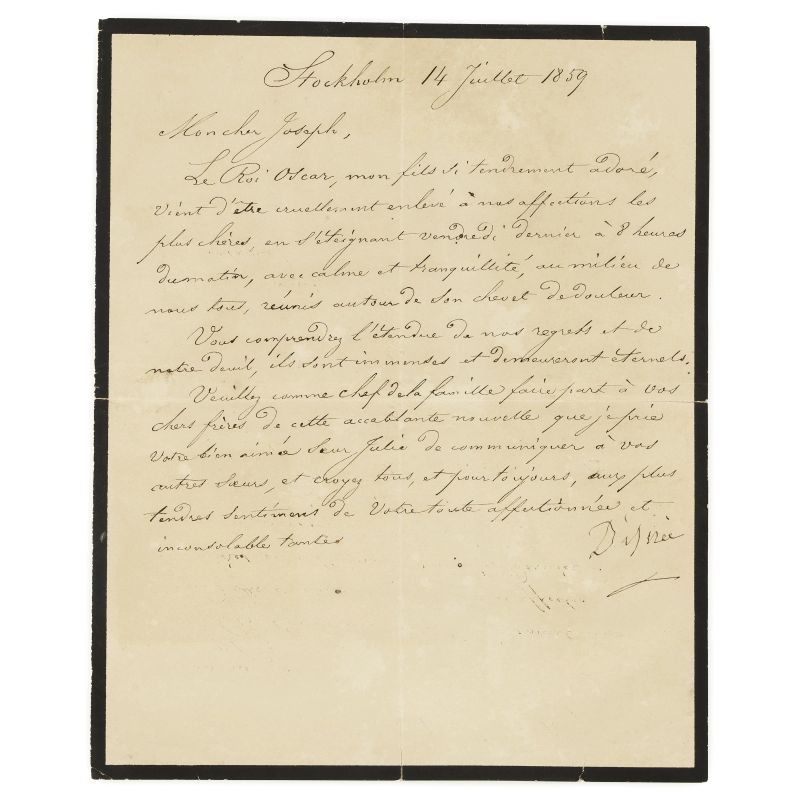 Stockholm 14 Juillet 1859
Mon cher Joseph,
Le Roi Oscar, mon fils si tendrement adoré,
vient d'être cruellement enlevé à nos affections les
plus chères, en s'éteignant vendredi dernier à 8 heures
du matin, avec calme et tranquillité, au milieu de
nous tous, réunis autour de son chevet de douleur.
Vous comprendrez l'étendue de nos regrets et de
notre deuil, ils sont immenses et demeureront éternels.
Veuillez comme chef de la famille faire part à vos
chers frères de cette accablante nouvelle que je prie
votre bien aimée Sœur Julie de communiquer à vos
autres sœurs, et croyez tous, et pour toujours, aux plus
tendres sentimens de Votre toute affectionnée et
inconsolable tante
Désirée